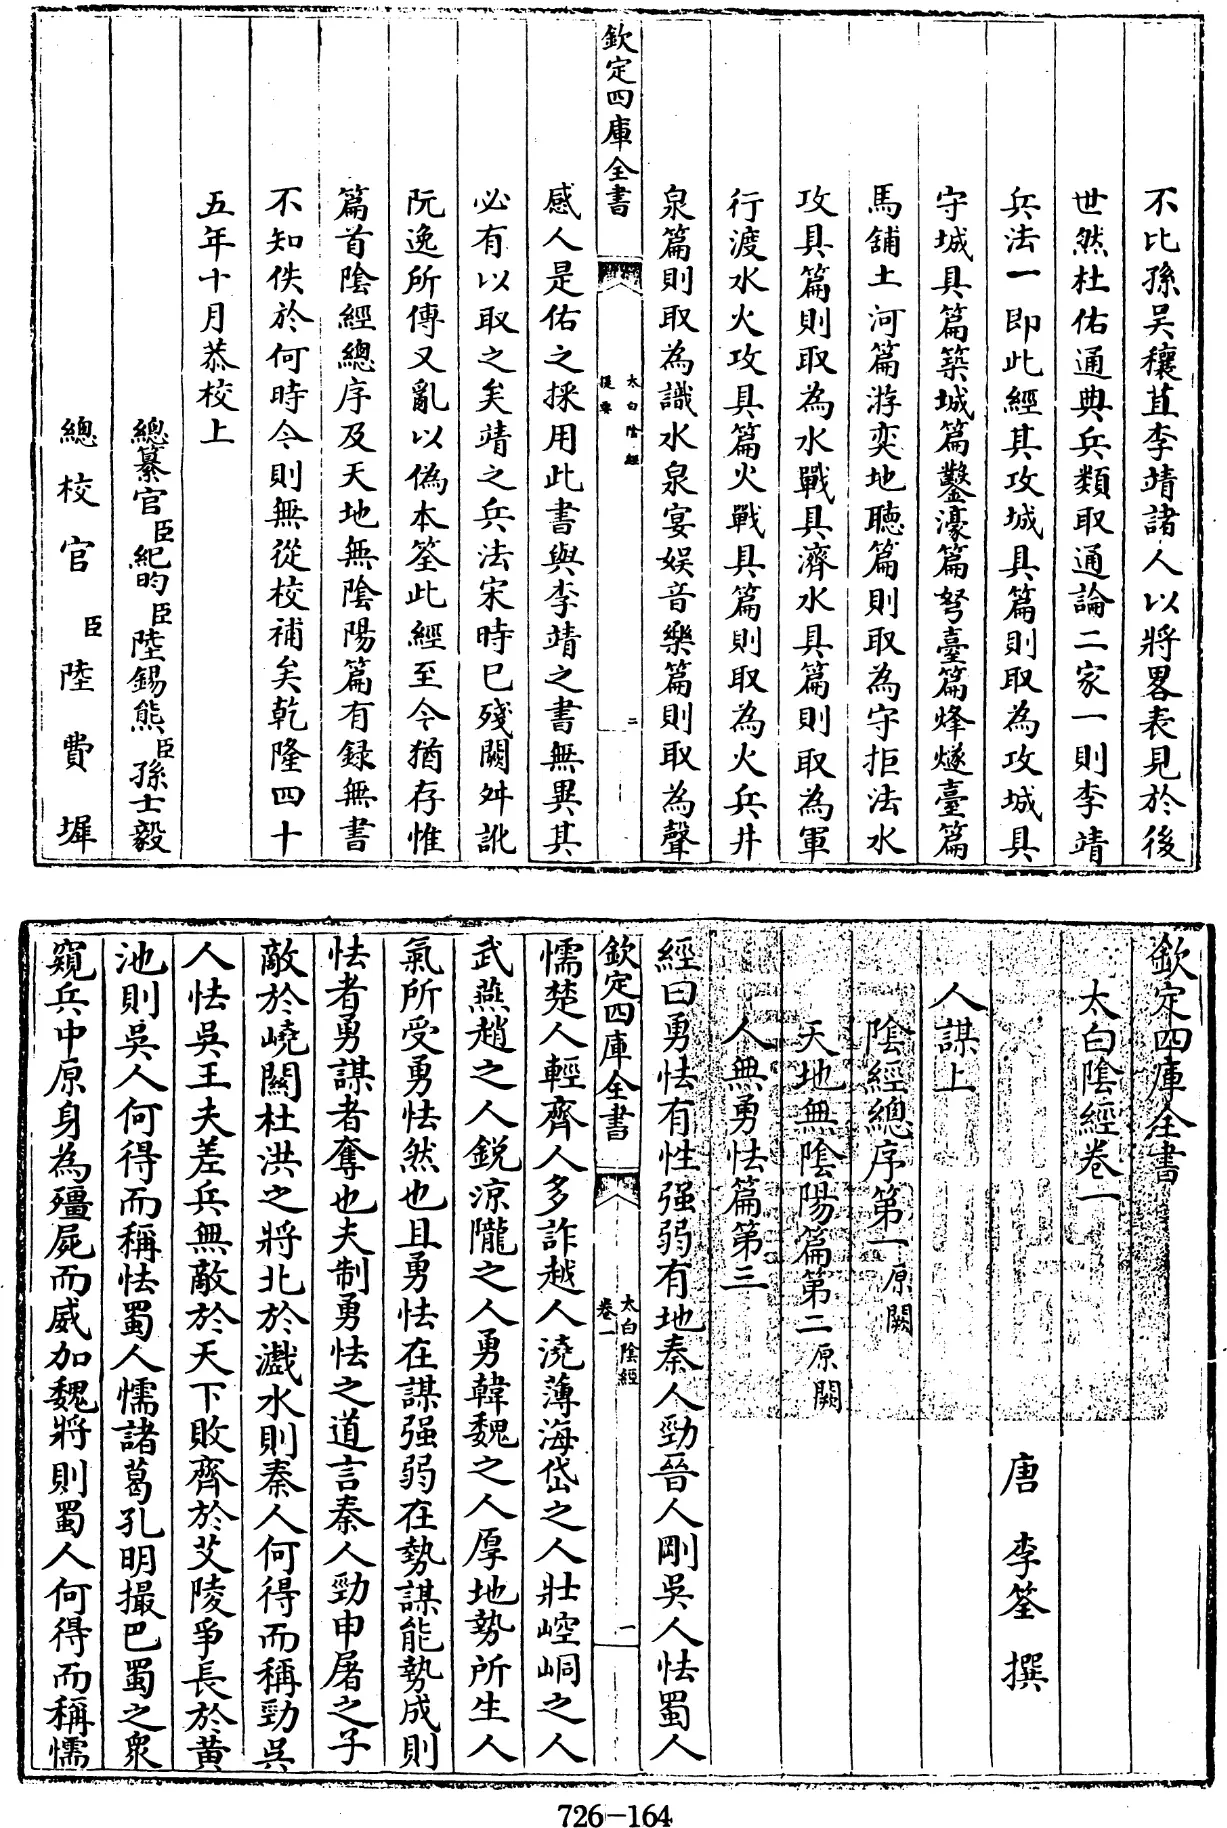 不比孫吳穰苴李靖諸人以將畧表見於後
世然杜佑通典兵類取通論二家一則李靖
兵法一即此經其攻城具篇則取為攻城具
守城具篇築城篇鑿濠篇弩臺篇烽燧臺篇
馬鋪土河篇游奕地聽篇則取為守拒法水
攻具篇則取為水戰具濟水具篇則取為軍
行渡水火攻具篇火戰具篇則取為火兵井
泉篇則取為識水泉宴娛音樂篇則取為聲
欽定四庫全書
太白陰經
提要
二
感人是佑之採用此書與李靖之書無異其
必有以取之矣靖之兵法宋時已殘闕舛訛
阮逸所傳又亂以偽本筌此經至今猶存惟
篇首陰經總序及天地無陰陽篇有録無書
不知佚於何時今則無從校補矣乾隆四十
五年十月恭校上
總纂官臣紀昀臣陸錫熊臣孫士毅
總校官臣陸費墀
欽定四庫全書
太白陰經卷一
唐 李筌 撰
人謀上
陰經總序第一原闕
天地無陰陽篇第二原闕
人無勇怯篇第三
經曰勇怯有性强弱有地秦人勁晉人剛吳人怯蜀人
欽定四庫全書
太白陰經
卷一
一
懦楚人輕齊人多詐越人澆薄海岱之人壯崆峒之人
武燕趙之人鋭涼隴之人勇韓魏之人厚地勢所生人
氣所受勇怯然也且勇怯在謀强弱在勢謀能勢成則
怯者勇謀者奪也夫制勇怯之道言秦人勁申屠之子
敵於嶢關杜洪之將北於戲水則秦人何得而稱勁吳
人怯吳王夫差兵無敵於天下敗齊於艾陵爭長於黃
池則吳人何得而稱怯蜀人懦諸葛孔明撮巴蜀之衆
窺兵中原身為殭屍而威加魏將則蜀人何得而稱懦
726-164